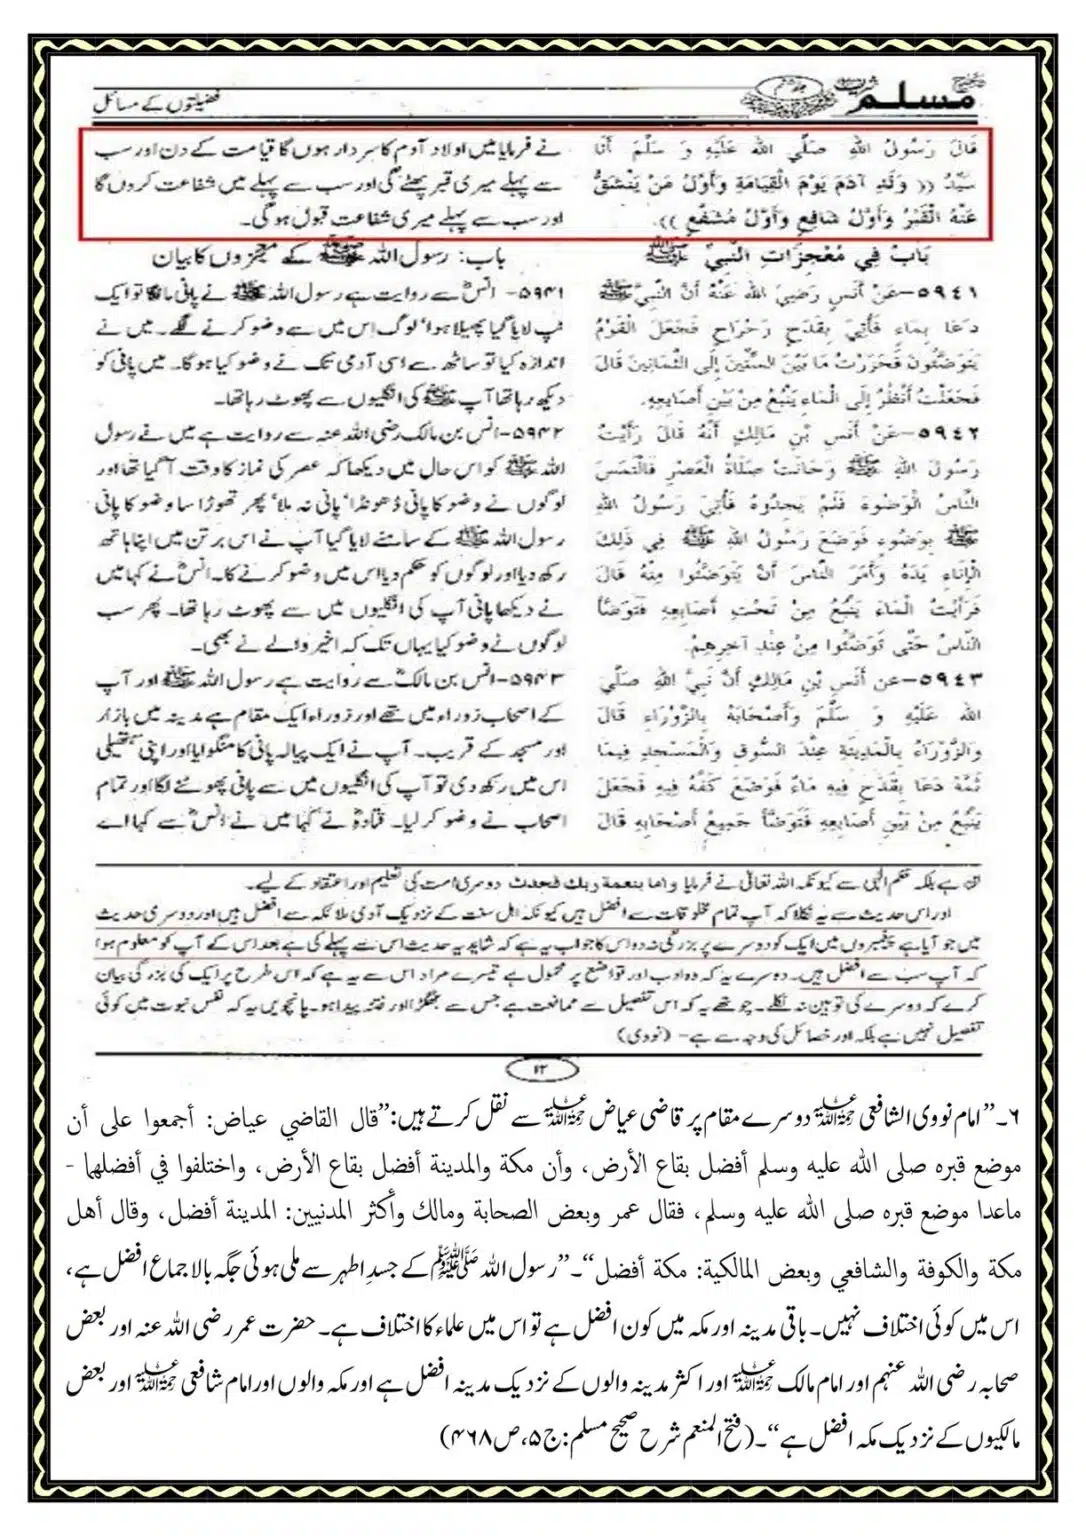 صحیح مسلم شریف
فضیلتوں کے مسائل
قَالَ رَسُولُ اللهِ صَلَّى اللهُ عَلَيْهِ وَ سَلَّمَ أَنَا
سَيِّدُ (( وَلَدِ آدَمَ يَوْمَ الْقِيَامَةِ وَأَوَّلُ مَنْ يَنْشَقُّ
عَنْهُ الْقَبْرُ وَأَوَّلُ شَافِعٍ وَأَوَّلُ مُشَفَّعٍ )).
بَابُ فِي مُعْجِزَاتِ النَّبِيِّ ﷺ
٥٩٤١-عَنْ أَنَسٍ رَضِيَ اللهُ عَنْهُ أَنَّ النَّبِيَّ ﷺ
دَعَا بِمَاءٍ فَأُتِيَ بِقَدَحٍ رَحْرَاحٍ فَجَعَلَ الْقَوْمُ
يَتَوَضَّئُونَ فَحَزَرْتُ مَا بَيْنَ السِّتِّينَ إِلَى الثَّمَانِينَ قَالَ
فَجَعَلْتُ أَنْظُرُ إِلَى الْمَاءِ يَنْبُعُ مِنْ بَيْنِ أَصَابِعِهِ.
٥٩٤٢-عَنْ أَنَسِ بْنِ مَالِكٍ أَنَّهُ قَالَ رَأَيْتُ
رَسُولَ اللهِ ﷺ وَحَانَتْ صَلَاةُ الْعَصْرِ فَالْتَمَسَ
النَّاسُ الْوَضُوءَ فَلَمْ يَجِدُوهُ فَأُتِيَ رَسُولُ اللهِ
ﷺ بِوَضُوءٍ فَوَضَعَ رَسُولُ اللهِ ﷺ فِي ذَلِكَ
الْإِنَاءِ يَدَهُ وَأَمَرَ النَّاسَ أَنْ يَتَوَضَّئُوا مِنْهُ قَالَ
فَرَأَيْتُ الْمَاءَ يَنْبُعُ مِنْ تَحْتِ أَصَابِعِهِ فَتَوَضَّأَ
النَّاسُ حَتَّى تَوَضَّئُوا مِنْ عِنْدِ آخِرِهِمْ.
٥٩٤٣-عن أَنَسِ بْنِ مَالِكٍ أَنَّ نَبِيَّ اللهِ صَلَّى
الله عَلَيْهِ وَ سَلَّمَ وَأَصْحَابَهُ بِالزَّوْرَاءِ قَالَ
وَالزَّوْرَاءُ بِالْمَدِينَةِ عِنْدَ السُّوقِ وَالْمَسْجِدِ فِيمَا
ثَمَّهْ دَعَا بِقَدَحٍ فِيهِ مَاءٌ فَوَضَعَ كَفَّهُ فِيهِ فَجَعَلَ
يَنْبُعُ مِنْ بَيْنِ أَصَابِعِهِ فَتَوَضَّأَ جَمِيعُ أَصْحَابِهِ قَالَ
نے فرمایا میں اولاد آدم کا سردار ہوں گا قیامت کے دن اور سب
سے پہلے میری قبر پھٹے گی اور سب سے پہلے میں شفاعت کروں گا
اور سب سے پہلے میری شفاعت قبول ہوگی۔
باب: رسول اللہ ﷺ کے معجزوں کا بیان
۵۹۴۱- انسؓ سے روایت ہے رسول اللہ ﷺ نے پانی مانگا تو ایک
پ لایا گیا پھیلا ہوا' لوگ اس میں سے وضو کرنے لگے۔ میں نے
اندازہ کیا تو ساٹھ سے اسی آدمی تک نے وضو کیا ہوگا۔ میں پانی کو
دیکھ رہا تھا آپ ﷺ کی انگلیوں سے پھوٹ رہا تھا۔
۵۹۴۲-انس بن مالک رضی اللہ عنہ سے روایت ہے میں نے رسول
اللہ ﷺ کو اس حال میں دیکھا کہ عصر کی نماز کا وقت آ گیا تھا اور
لوگوں نے وضو کا پانی ڈھونڈا' پانی نہ ملا' پھر تھوڑا سا وضو کا پانی
رسول اللہ ﷺ کے سامنے لایا گیا آپ نے اس برتن میں اپنا ہاتھ
رکھ دیا اور لوگوں کو حکم دیا اس میں وضو کرنے کا۔ انسؓ نے کہا میں
نے دیکھا پانی آپ کی انگلیوں میں سے پھوٹ رہا تھا۔ پھر سب
لوگوں نے وضو کیا یہاں تک کہ اخیر والے نے بھی۔
۵۹۴۳-انس بن مالکؓ سے روایت ہے رسول اللہ ﷺ اور آپ
کے اصحاب زوراء میں تھے اور زوراء ایک مقام ہے مدینہ میں بازار
اور مسجد کے قریب۔ آپ نے ایک پیالہ پانی کا منگوایا اور اپنی ہتھیلی
اس میں رکھ دی تو آپ کی انگلیوں میں سے پانی پھوٹنے لگا اور تمام
اصحاب نے وضو کر لیا۔ قتادہؒ نے کہا میں نے انسؓ سے کہا اے
ہے بلکہ حکم الٰہی سے کیونکہ اللہ تعالیٰ نے فرمایا واما بنعمة ربك فحدث دوسری امت کی تعلیم اور اعتقاد کے لیے۔
اور اس حدیث سے یہ نکلا کہ آپ تمام مخلوقات سے افضل ہیں کیونکہ اہل سنت کے نزدیک آدمی ملائکہ سے افضل ہیں اور دوسری حدیث
میں جو آیا ہے پیغمبروں میں ایک کو دوسرے پر بزرگی نہ دو اس کا جواب یہ ہے کہ شاید یہ حدیث اس سے پہلے کی ہے بعد اس کے آپ کو معلوم ہوا
کہ آپ سب سے افضل ہیں۔ دوسرے یہ کہ وہ ادب اور تواضع پر محمول ہے تیسرے مراد اس سے یہ ہے کہ اس طرح پر ایک کی بزرگی بیان
کرے کہ دوسرے کی توہین نہ نکلے۔ چوتھے یہ کہ اس تفصیل سے ممانعت ہے جس سے جھگڑا اور فتنہ پیدا ہو۔ پانچویں یہ کہ نفس نبوت میں کوئی
تفصیل نہیں ہے بلکہ اور خصائل کی وجہ سے ہے۔ (نووی)
۶۔ ”امام نووی الشافعی رحمۃ اللہ علیہ دوسرے مقام پر قاضی عیاض رحمۃ اللہ علیہ سے نقل کرتے ہیں:”قال القاضي عياض: أجمعوا على أن
موضع قبره صلى الله عليه وسلم أفضل بقاع الأرض، وأن مكة والمدينة أفضل بقاع الأرض، واختلفوا في أفضلهما -
ماعدا موضع قبره صلى الله عليه وسلم، فقال عمر وبعض الصحابة ومالك وأكثر المدنيين: المدينة أفضل، وقال أهل
مكة والكوفة والشافعي وبعض المالكية: مكة أفضل“۔”رسول اللہ ﷺ کے جسدِ اطہر سے ملی ہوئی جگہ بالاجماع افضل ہے،
اس میں کوئی اختلاف نہیں۔ باقی مدینہ اور مکہ میں کون افضل ہے تو اس میں علماء کا اختلاف ہے۔ حضرت عمر رضی اللہ عنہ اور بعض
صحابہ رضی اللہ عنہم اور امام مالک رحمۃ اللہ علیہ اور اکثر مدینہ والوں کے نزدیک مدینہ افضل ہے اور مکہ والوں اور امام شافعی رحمۃ اللہ علیہ اور بعض
مالکیوں کے نزدیک مکہ افضل ہے“۔ (فتح المنعم شرح صحیح مسلم: ج۵، ص۴۶۸)